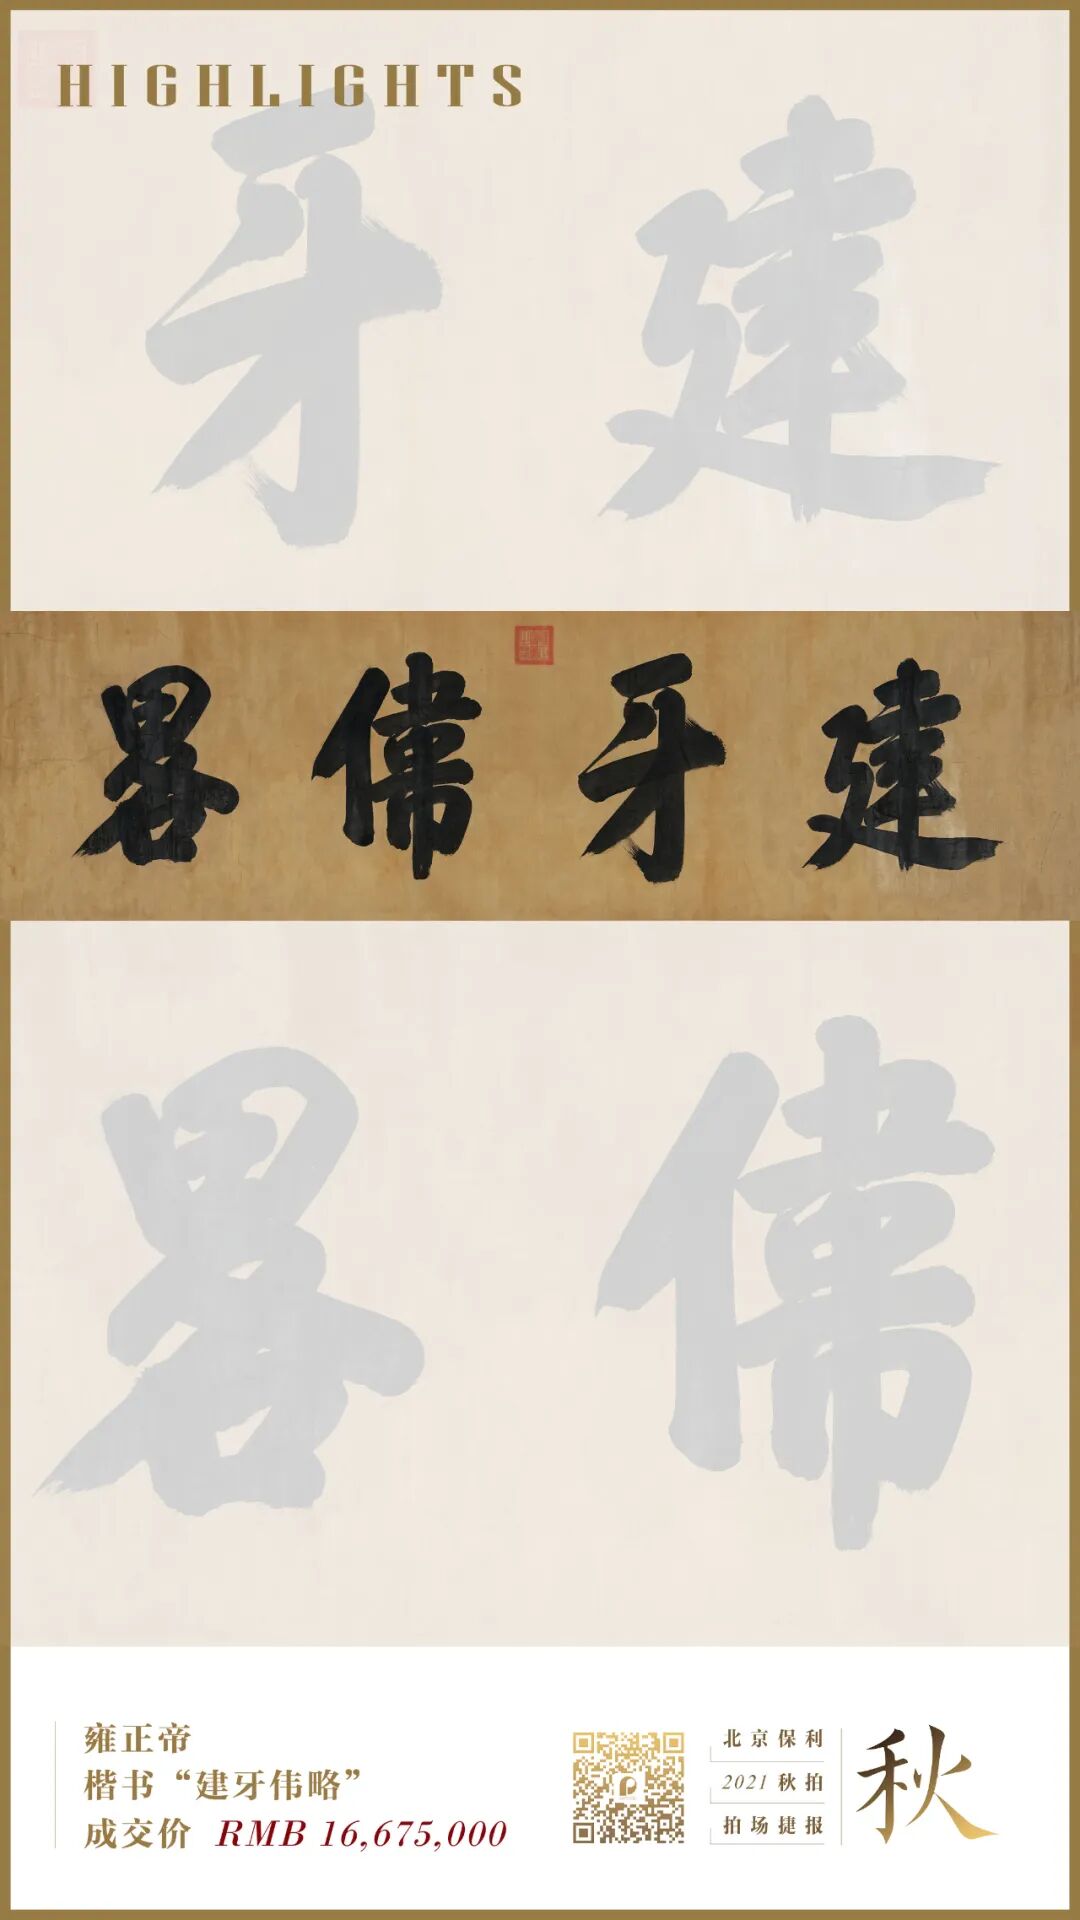 HIGHLIGHTS
建牙
建牙偉畧
偉畧
雍正帝
楷书“建牙伟略”
成交价 RMB 16,675,000
北京保利
2021 秋拍
拍场捷报
秋